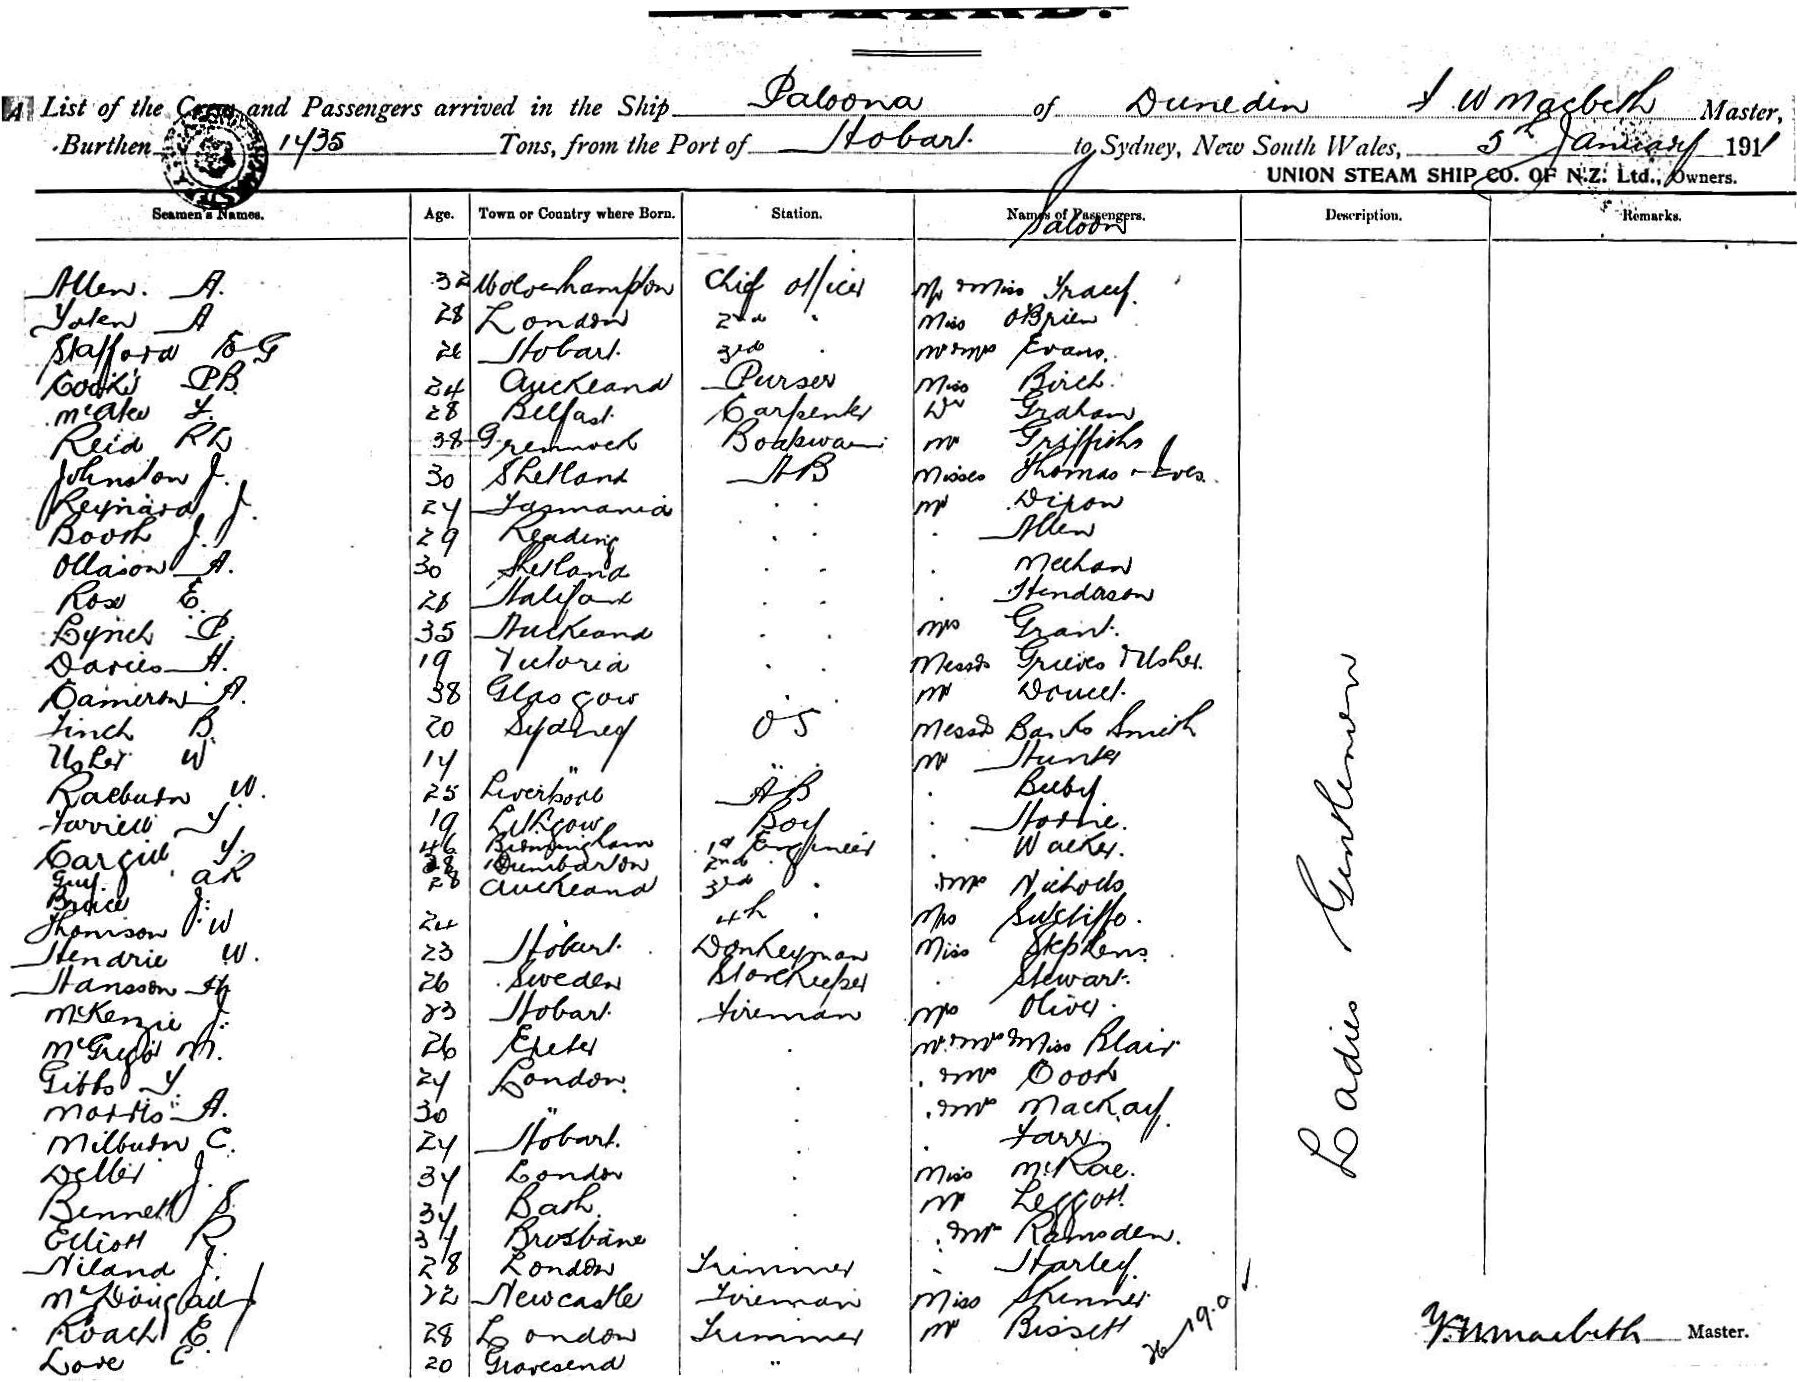 A List of the Crew and Passengers arrived in the Ship Paloona of Dunedin F W Macbeth Master,
Burthen 1435 Tons, from the Port of Hobart to Sydney, New South Wales, 5th January 1911
UNION STEAM SHIP CO. OF N.Z. Ltd., Owners.
Seamen's Names. Age. Town or Country where Born. Station. Names of Passengers. Description. Remarks.
Saloon
Allen. A. 32 Wolverhampton Chief Officer Mr & Miss Tracey.
A 28 London 2nd " Miss O'Brien
Stafford E G 26 Hobart 3rd " Mr & Mrs Evans.
Cooke P B. 24 Auckland Purser Miss Birch.
28 Belfast Carpenter Dr Graham
Reid R L 38 Greennock Boatswain Mr Griffiths
Johnston J. 30 Shetland A B Misses Thomas & Ives.
Reynard J. 24 Tasmania " " Mr Dixon
Booth J. 29 Reading " " " Allen
Ollason A. 30 Shetland " " " Meehan
Rose E. 28 Halifax " " " Henderson
Lynch P. 35 Auckland " " Mrs Grant.
Davies H. 19 Victoria " " Messrs Grieves & Usher.
Cameron A. 38 Glasgow " " Mr Doucet.
Finch B. 20 Sydney O S Messrs Banks Smith
Usher W 14 " " Mr Hunter
Raeburn W. 25 Liverpool A B " Beeby
19 Lithgow Boy " Horne.
Cargill F. 46 Birmingham 1st Engineer " Walker.
Guy. A R 28 Dumbarton 2nd "
Bruce J. 28 Auckland 3rd " " & Mrs Nichols
Thomson W 24 " 4th " Mrs Sutcliffe.
Hendrie W. 23 Hobart. Donkeyman Miss Stephens.
Hansson H 26 Sweden Storekeeper " Stewart.
McKenzie J. 23 Hobart. Fireman Mrs Oliver.
McGregor M. 26 Exeter " Mr. Mrs & Miss Blair
Gibbs F. 24 London. " " & Mrs Cook
Morris A. 30 " " " & Mrs Mackay.
Milburn C. 24 Hobart. " " Farr
Deller J. 34 London " Miss McRae.
Bennett S. 34 Bath. " Mr Leggott.
Elliott R. 34 Brisbane " & Mrs Ramsden.
Niland J. 28 London Trimmer " Harley.
McDougall J 22 Newcastle Fireman Miss Skinner
Roach E. 28 London Trimmer Mr Bissett
Love E. 20 Gravesend "
Ladies Gentlemen
26 19.0
F. W Macbeth Master.